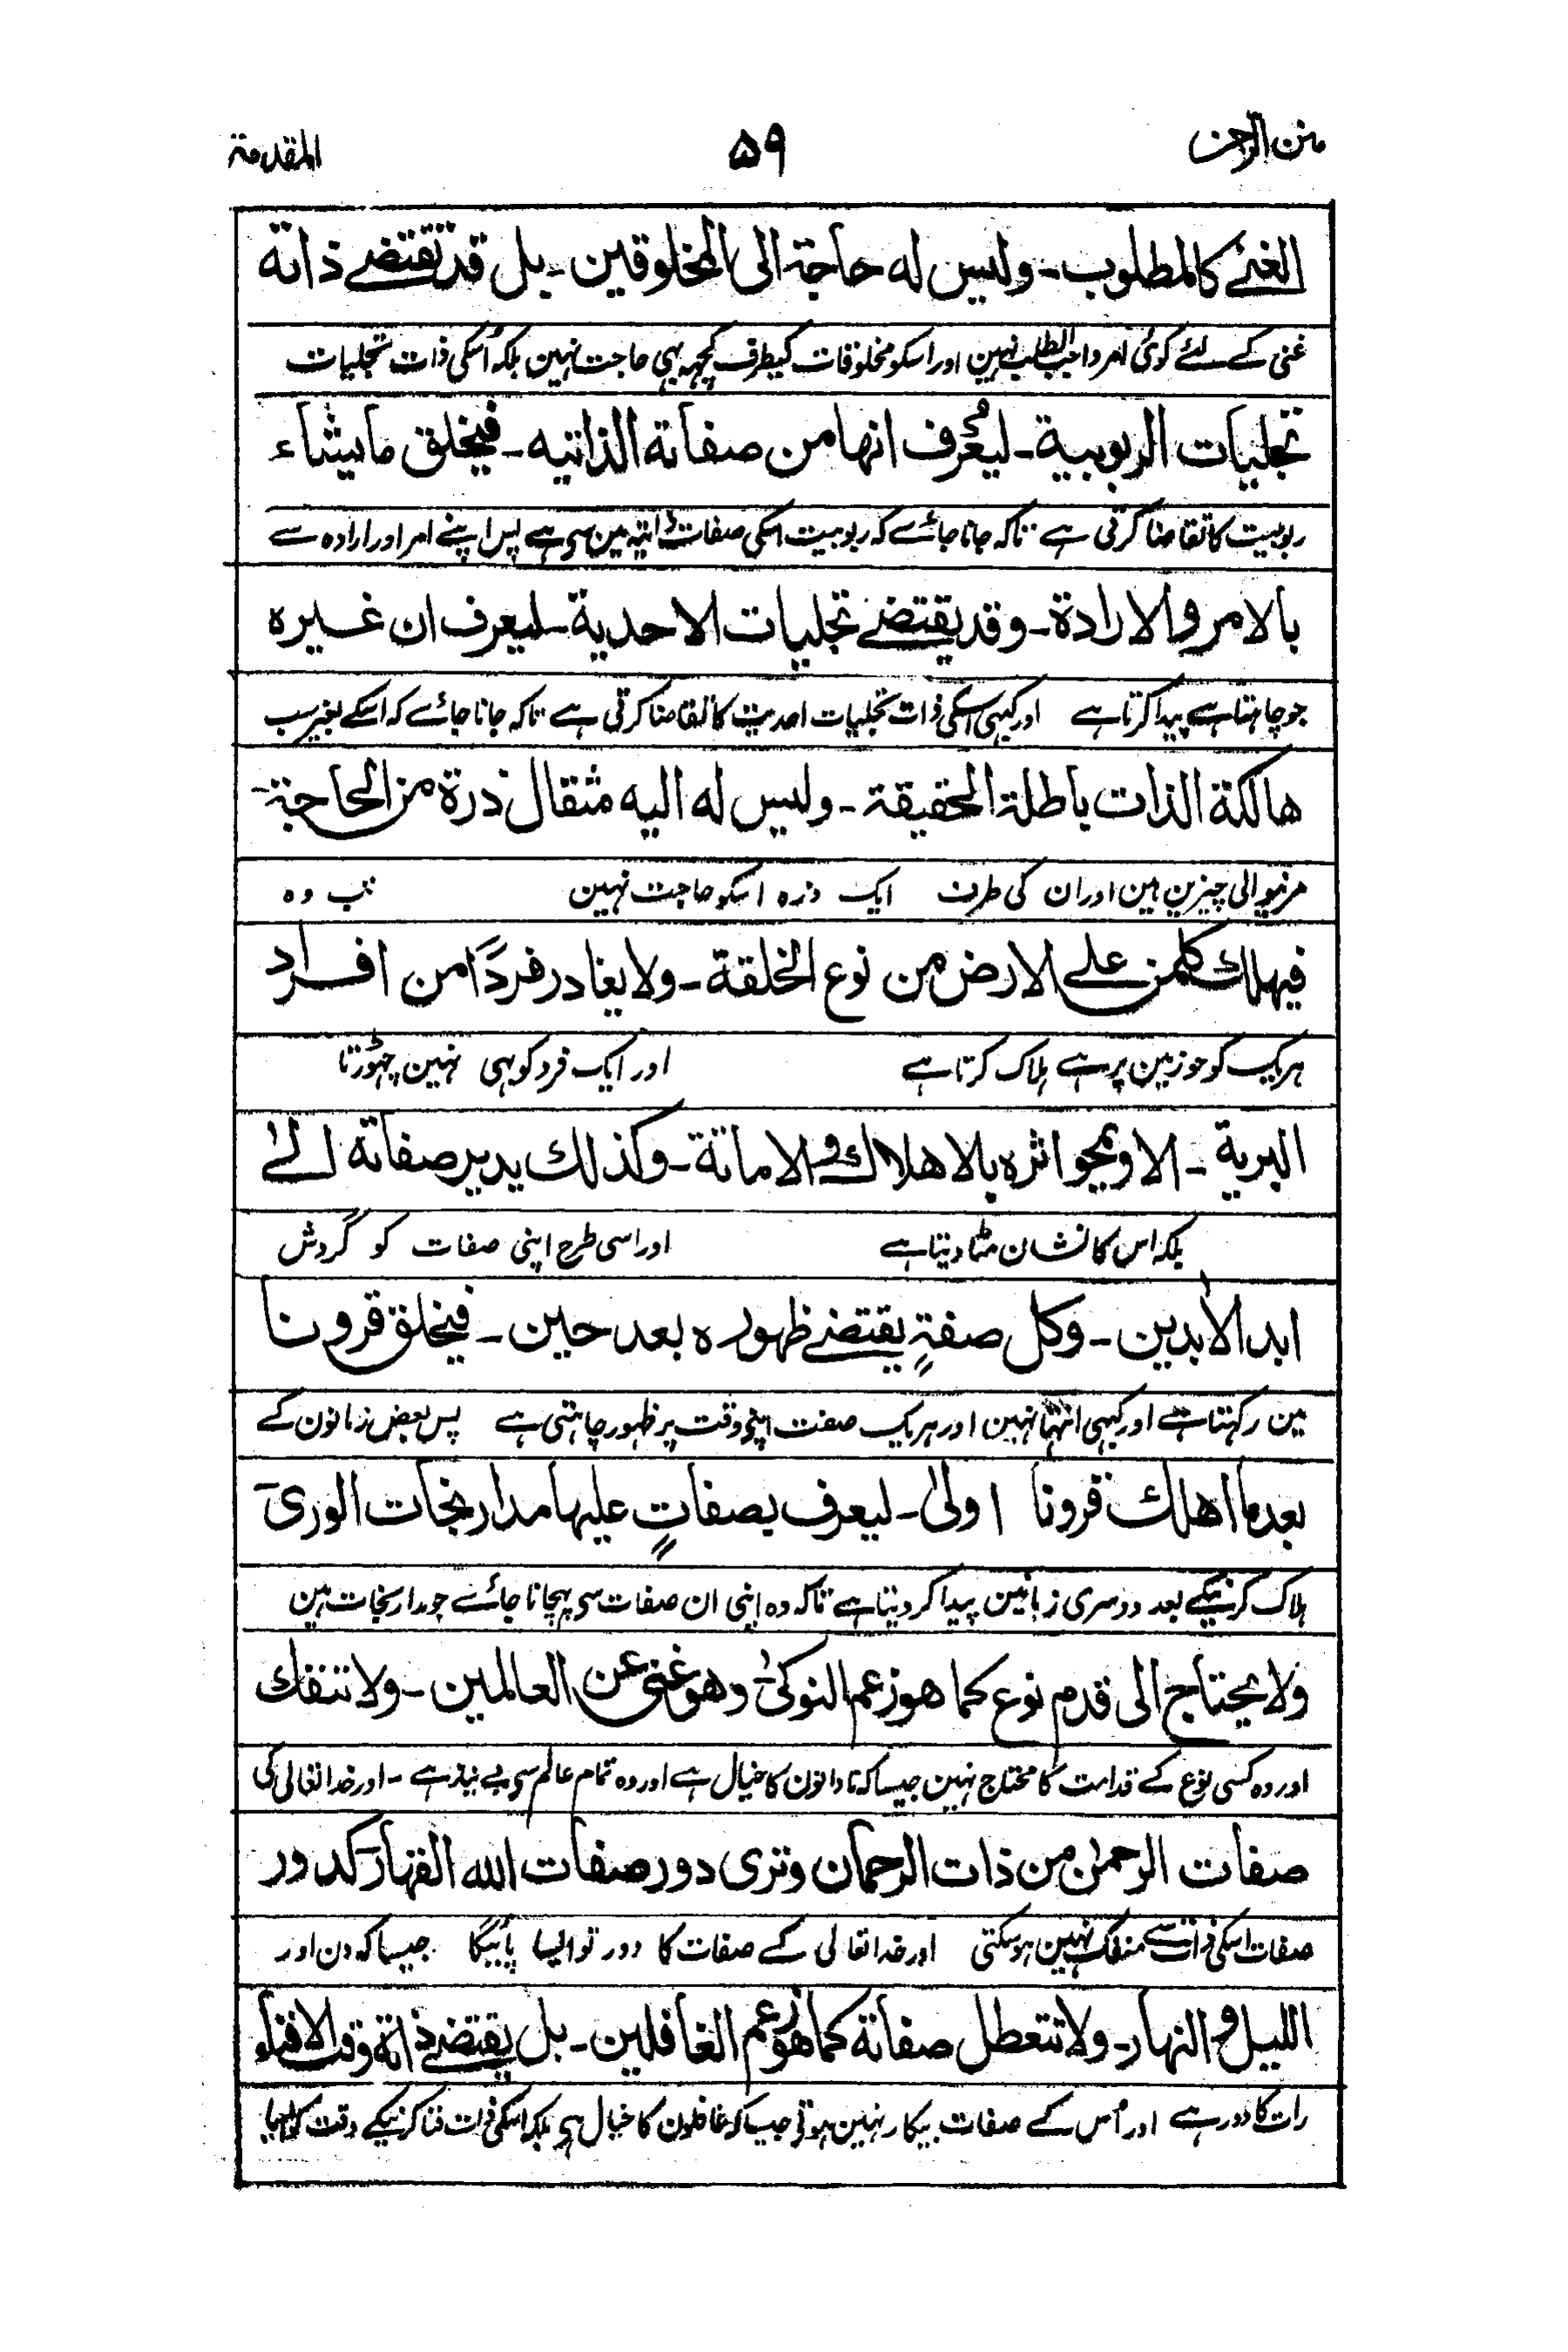 منن الرحمٰن ۵۹ المقدمة
الغنیّ کالمطلوب۔ ولیس له حاجة الی المخلوقین۔ بل قد تقتضی ذاته
غنی کے لئے کوئی امر واجب الطلب نہین اور اسکو مخلوقات کیطرف کچہہ بہی حاجت نہین بلکہ اُسکی ذات تجلیات
تجلیات الربوبیة۔ لیُعْرف انها من صفاته الذاتیه۔ فیخلق مایشاء
ربوبیت کا تقاضا کرتی ہے تاکہ جانا جائے کہ ربوبیت اسکی صفات ذاتیہ مین سی ہے پس اپنے امر اور ارادہ سے
بالامر والارادة۔ وقد یقتضی تجلیات الاحدیة۔ لیعرف ان غیره
جو چاہتا ہے پیدا کرتا ہے اور کبہی اسکی ذات تجلیات احدیت کا تقاضا کرتی ہے تاکہ جانا جائے کہ اسکے بغیر سب
هالکة الذات باطلة الحقیقة۔ ولیس له الیه مثقال ذرة من الحاجة۔
مرنیوالی چیزین ہین اور ان کی طرف ایک ذرہ اسکو حاجت نہین تب وہ
فیهلك کلمن علی الارض من نوع الخلقة۔ ولا یغادر فردًا من افراد
ہریک کو جو زمین پر ہے ہلاک کرتا ہے اور ایک فرد کو بہی نہین چہوڑتا
البریة۔ الا ویمحو اثره بالاهلاك والاماتة۔ وکذلك یدیر صفاته الیٰ
بلکہ اس کا نشان مٹا دیتا ہے اور اسی طرح اپنی صفات کو گردش
ابد الاٰبدین۔ وکل صفةٍ یقتضی ظهوره بعد حین۔ فیخلق قرونا
مین رکہتا ہے اور کبہی انتہا نہین اور ہریک صفت اپنے وقت پر ظہور چاہتی ہے پس بعض زمانون کے
بعد ما اهلك قرونا اولیٰ۔ لیعرف بصفاتٍ علیها مدار نجات الوریٰ
ہلاک کرنیکے بعد دوسری زمانین پیدا کر دیتا ہے تاکہ وہ اپنی ان صفات سی پہچانا جائے جو مدار نجات ہین
ولا یحتاج الی قدم نوع کما هو زعم النوکیٰ وهو غنی عن العالمین۔ ولا تنفك
اور وہ کسی نوع کے قدامت کا محتاج نہین جیسا کہ نادانون کا خیال ہے اور وہ تمام عالم سی بے نیاز ہے۔ اور خدا تعالیٰ کی
صفات الرحمٰن من ذات الرحمان وتری دور صفات الله القهار کدور
صفات اسکی ذات سے منفک نہین ہو سکتی اور خدا تعالی کے صفات کا دور تو ایسا پائیگا جیسا کہ دن اور
اللیل والنهار۔ ولا تتعطل صفاته کما هو زعم الغافلین۔ بل یقتضی ذاته وقت الافناء
رات کا دور ہے اور اُس کے صفات بیکار نہین ہوتی جیسا کہ غافلون کا خیال ہی بلکہ اسکی ذات فنا کرنیکے وقت کو ایسا